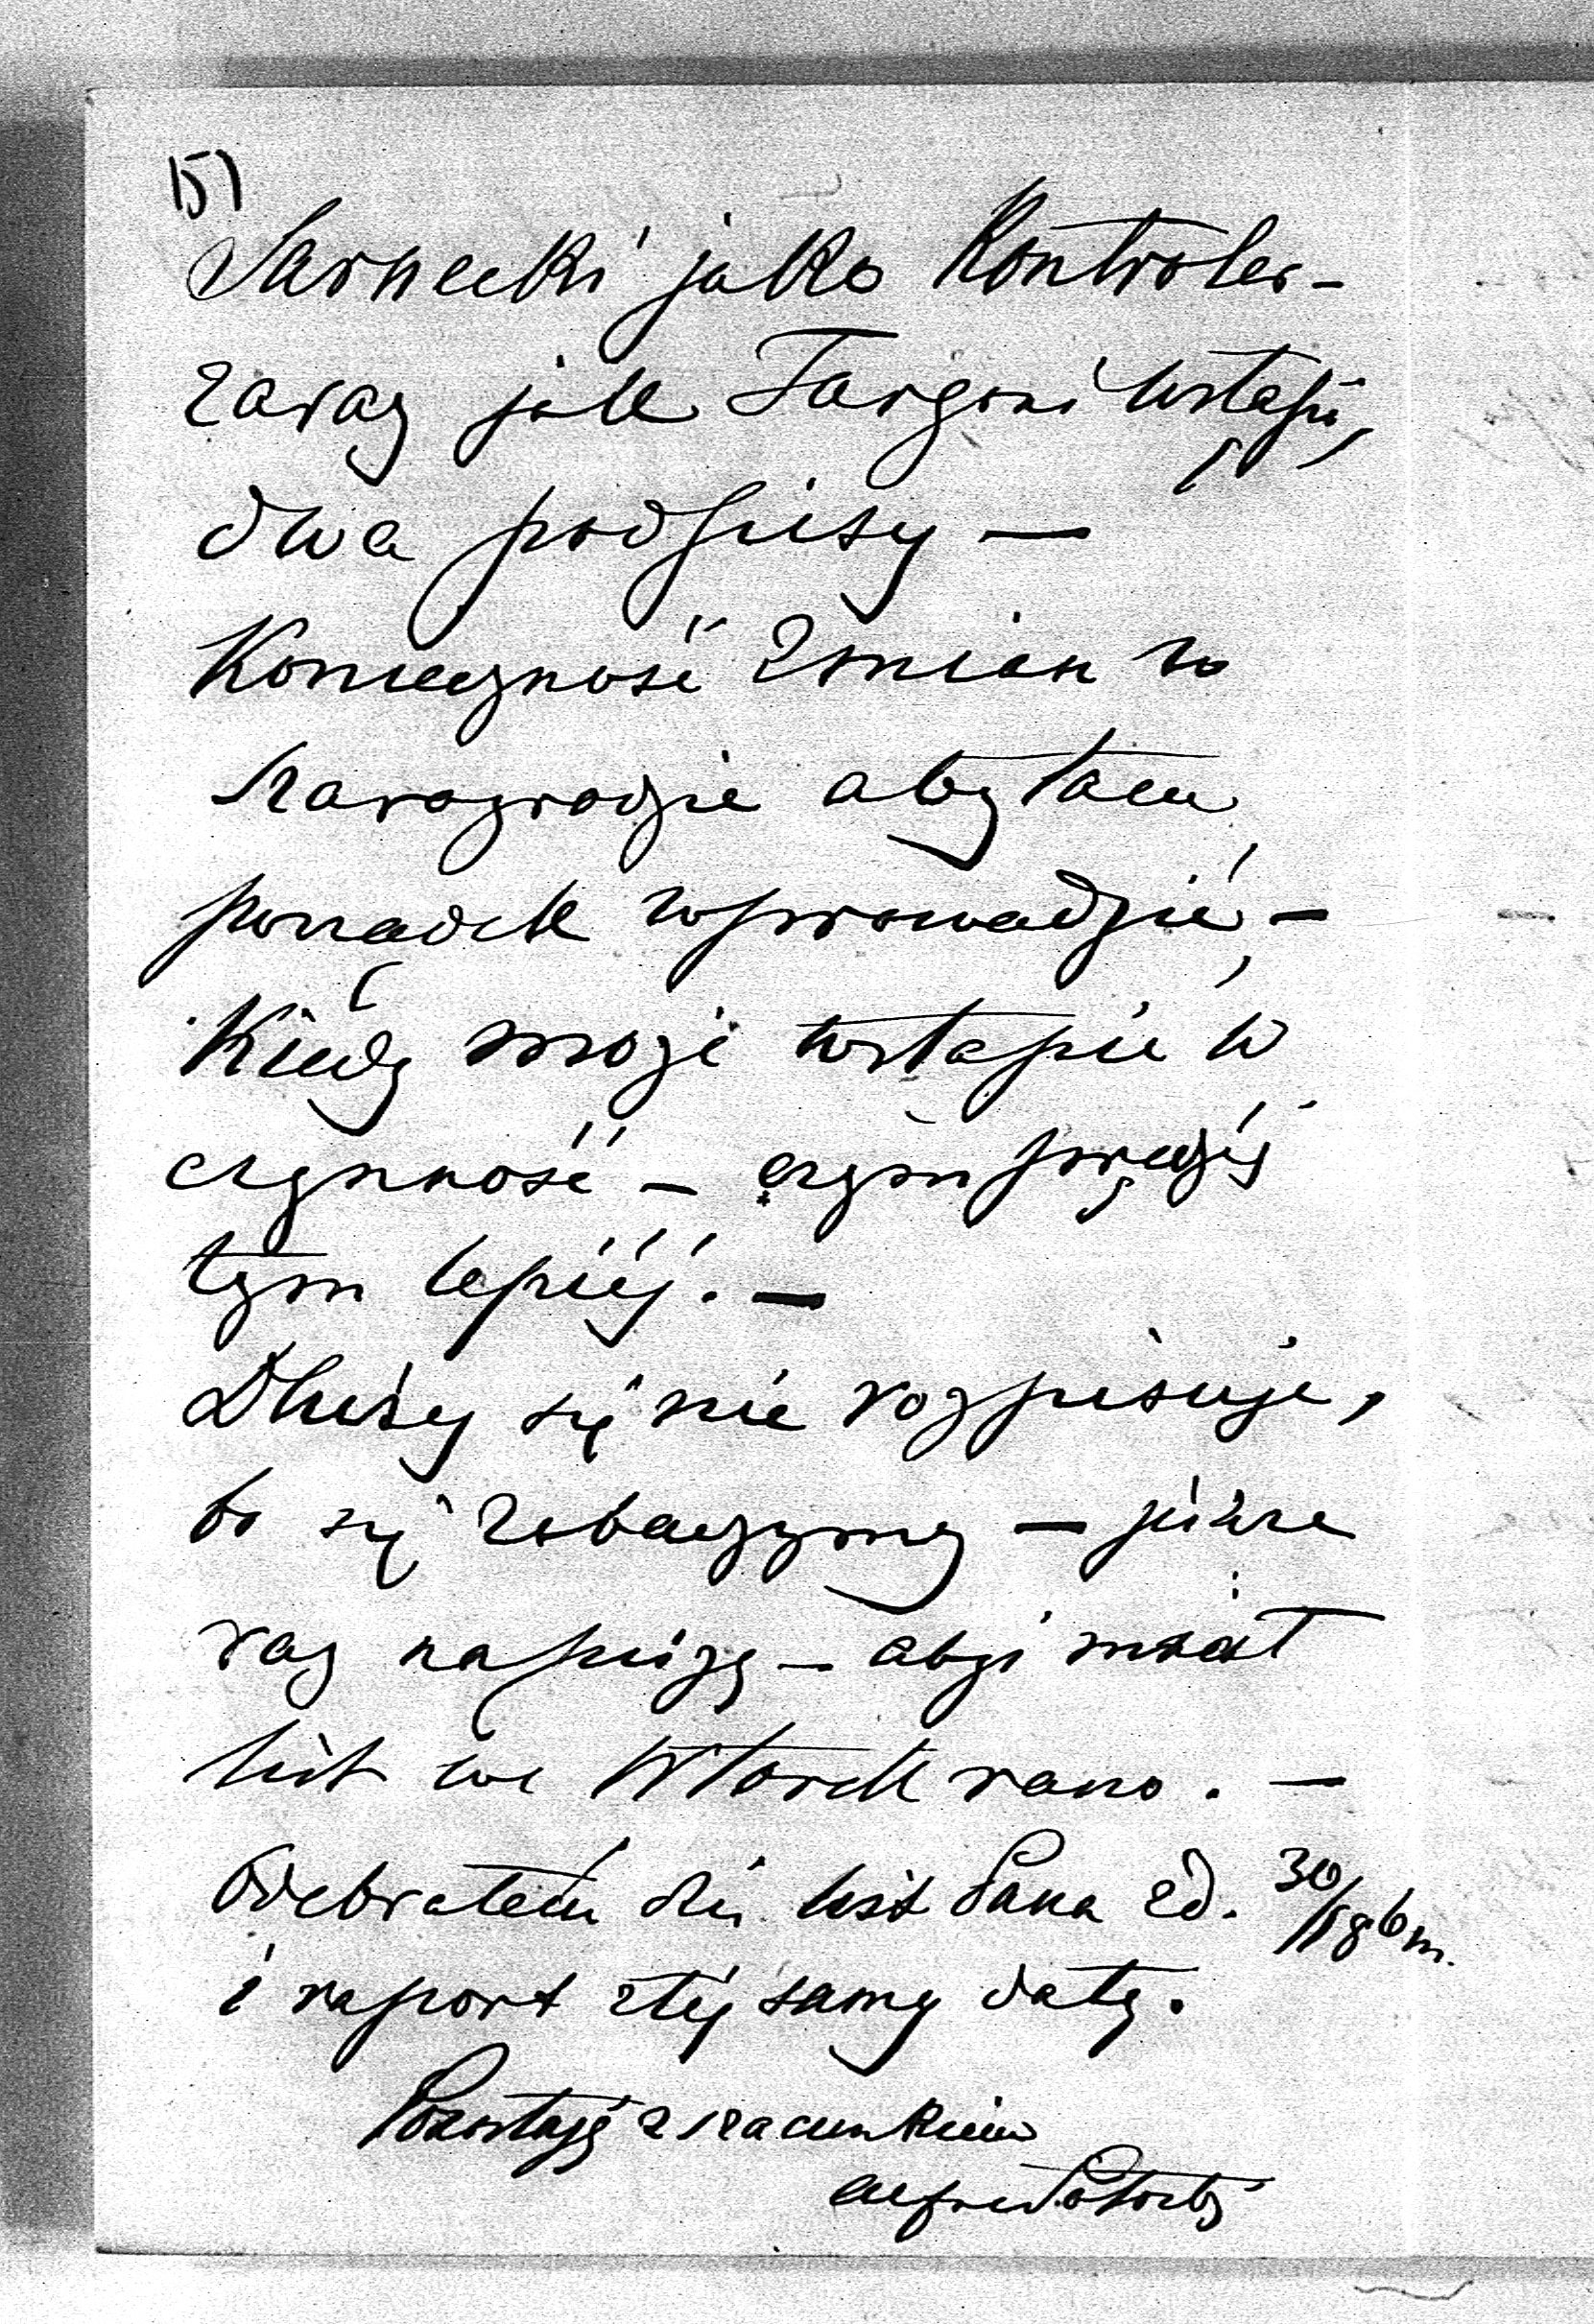 15)
Sarnecki jako Kontroler -
zaraz jak Targoni wstąpi,
dwa podpisy —
Konieczność zmian w
Szarogrodzie aby tam
porządek wprowadzić, -
Kiedy może wstąpić w
czynność — czym prędzéj
tym lepiéj. —
Dłużéj się nie rozpisuję,
bo się zobaczymy — jeszcze
raz napiszę — abyś miał
list we Wtorek rano. —
Odebrałem dziś list Pana zd. 30/186 m.
i raport z téj saméj daty.
Pozostaję z szacunkiem
Alfred Potocki